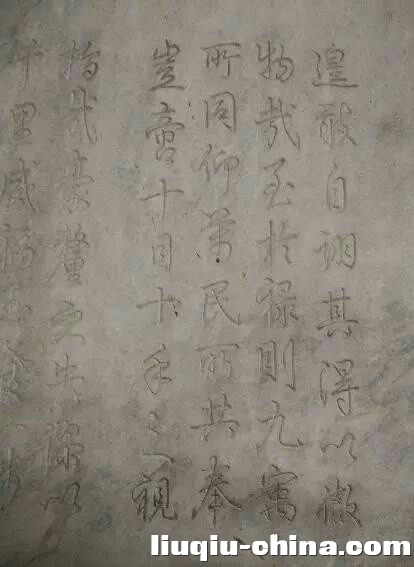 遑敢自詡其得以
物哉至於祿則九寓
所同仰萬民所共奉
豈啻十目十手之視
指哉豪釐之失謬以
千里威福玉食
liuqiu-china.com